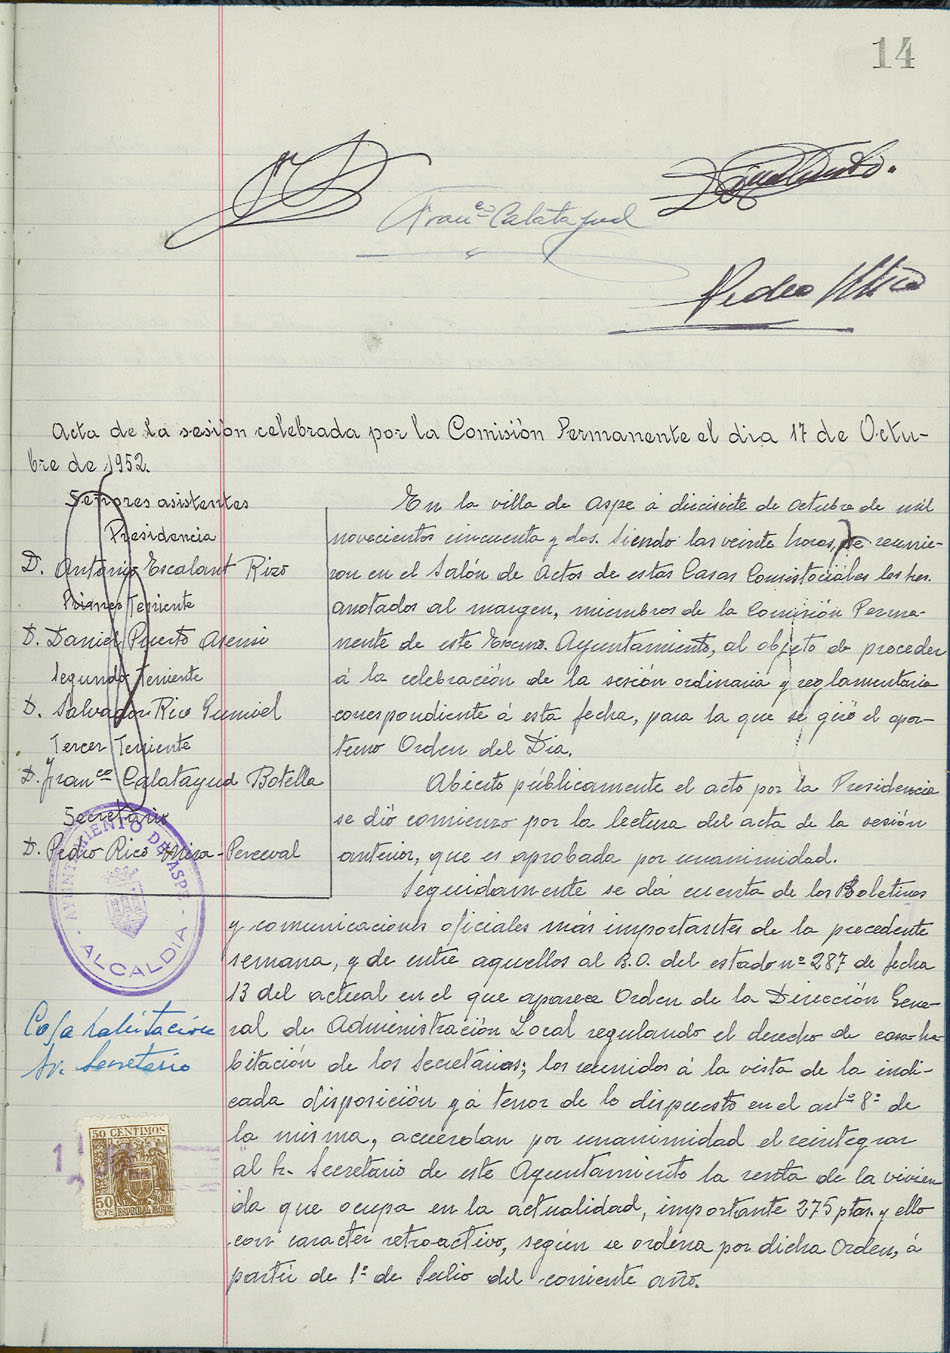 14
Fran.co Calatayud
Pedro Rico
Acta de la sesión celebrada por la Comisión Permanente el dia 17 de Octu-
bre de 1952.
Señores asistentes
Presidencia
D. Antonio Escalant Rizo
Primer Teniente
D. Daniel Puerto Asensi
Segundo Teniente
D. Salvador Rico Gumiel
Tercer Teniente
D. Fran.co Calatayud Botella
Secretario
D. Pedro Rico Mira-Perceval
AYUNTAMIENTO DE ASPE
- ALCALDIA -
Casa habitación
Sr. Secretario
50 CENTIMOS
50
CTS
ESPECIAL MOVIL
En la villa de Aspe á diecisiete de octubre de mil
novecientos cincuenta y dos. Siendo las veinte horas, se reunie-
ron en el Salón de Actos de estas Casas Consistoriales los Sres.
anotados al margen, miembros de la Comisión Perma-
nente de este Excmo. Ayuntamiento, al objeto de proceder
á la celebración de la sesión ordinaria y reglamentaria
correspondiente á esta fecha, para la que se giró el opor-
tuno Orden del Dia.
Abierto públicamente el acto por la Presidencia
se dió comienzo por la lectura del acta de la sesión
anterior, que es aprobada por unanimidad.
Seguidamente se dá cuenta de los Boletines
y comunicaciones oficiales más importantes de la precedente
semana, y de entre aquellos al B.O. del estado nº 287 de fecha
13 del actual en el que aparece Orden de la Dirección Gene-
ral de Administración Local regulando el derecho de casa-ha-
bitación de los Secretarios; los reunidos á la vista de la indi-
cada disposición y á tenor de lo dispuesto en el artº 8º de
la misma, acuerdan por unanimidad el reintegrar
al Sr. Secretario de este Ayuntamiento la renta de la vivien
da que ocupa en la actualidad, importante 275 ptas. y ello
con caracter retro-activo, según se ordena por dicha Orden, á
partir de 1º de Julio del corriente año.